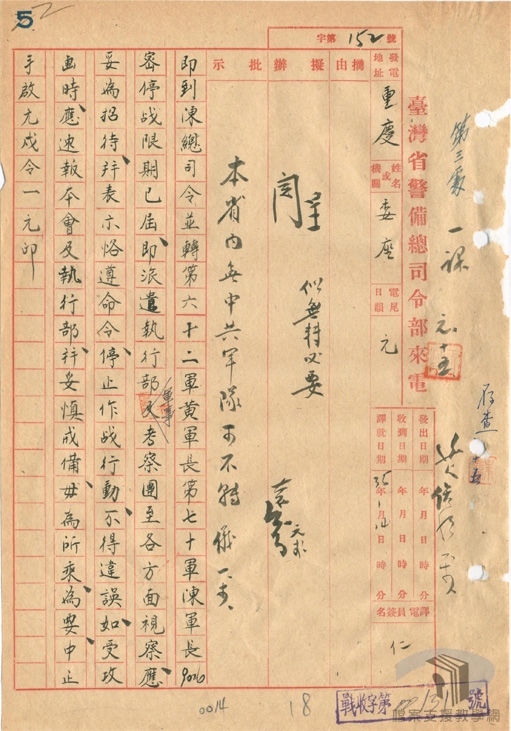 5
臺灣省警備總司令部來電
第三處
一課
元、十五
存查
發出日期 年 月 日 時 分
收到日期 年 月 日 時 分
譯就日期 35年 1月 14日 時 分
譯電員簽名 仁
字第 152 號
發電地址 重慶
姓名或機關 委座
電尾日韻 元
摘由
擬辦
閱呈
似無轉必要
批示
本省內無中共軍隊可不轉
即到陳總司令並轉第六十二軍黃軍長第七十軍陳軍長 9016
密停战限期已屆、即派遣執行部及軍事考察團至各方面視察、應
妥為招待、并表示恪遵命令、停止作战行動、不得違誤、如受攻
擊時、應速報本會及執行部、并妥慎戒備、毋為所乘、為要、中止
手啟元戌令一元印
0014
18
戰收字第 號
檔案支援教學網